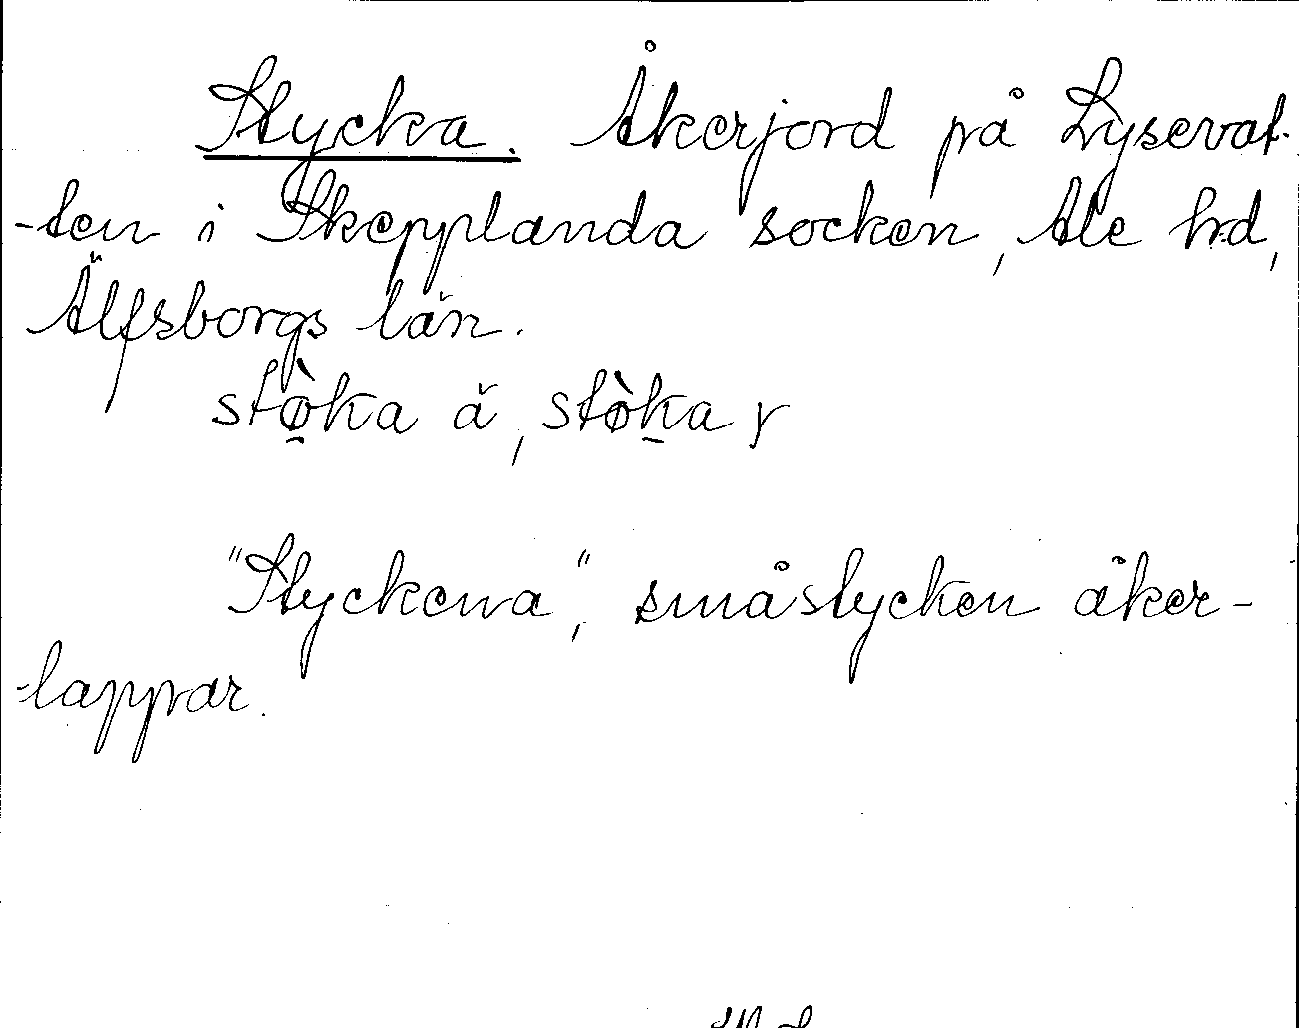 Stycka. Åkerjord på Lysevat-
-ten i Skepplanda socken, Ale hd,
Älfsborgs län.
stø̀ka ä, stø̀ka r
"Styckena", småstycken åker-
-lappar.